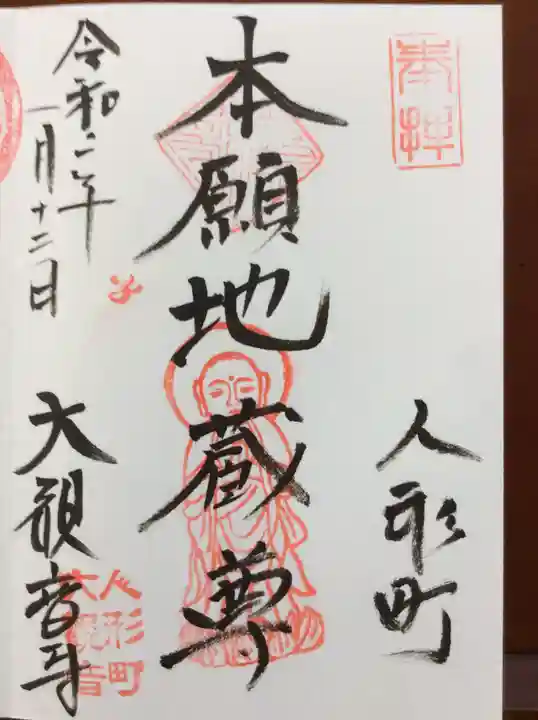 奉拝
人形町
本願地蔵尊
令和二年
一月十二日
大観音寺
人形町
大観音